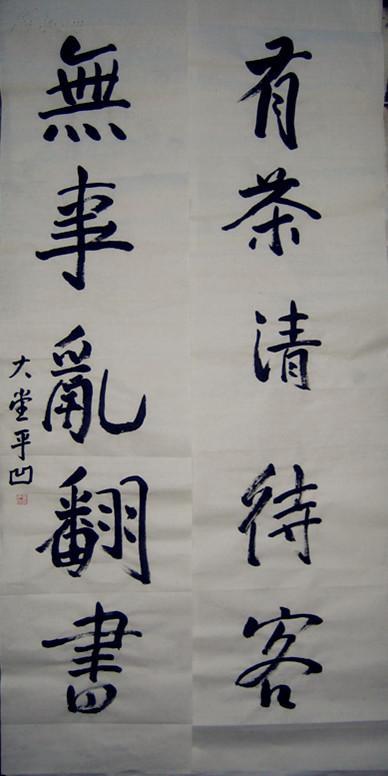 有茶清待客
無事亂翻書
大堂平凹